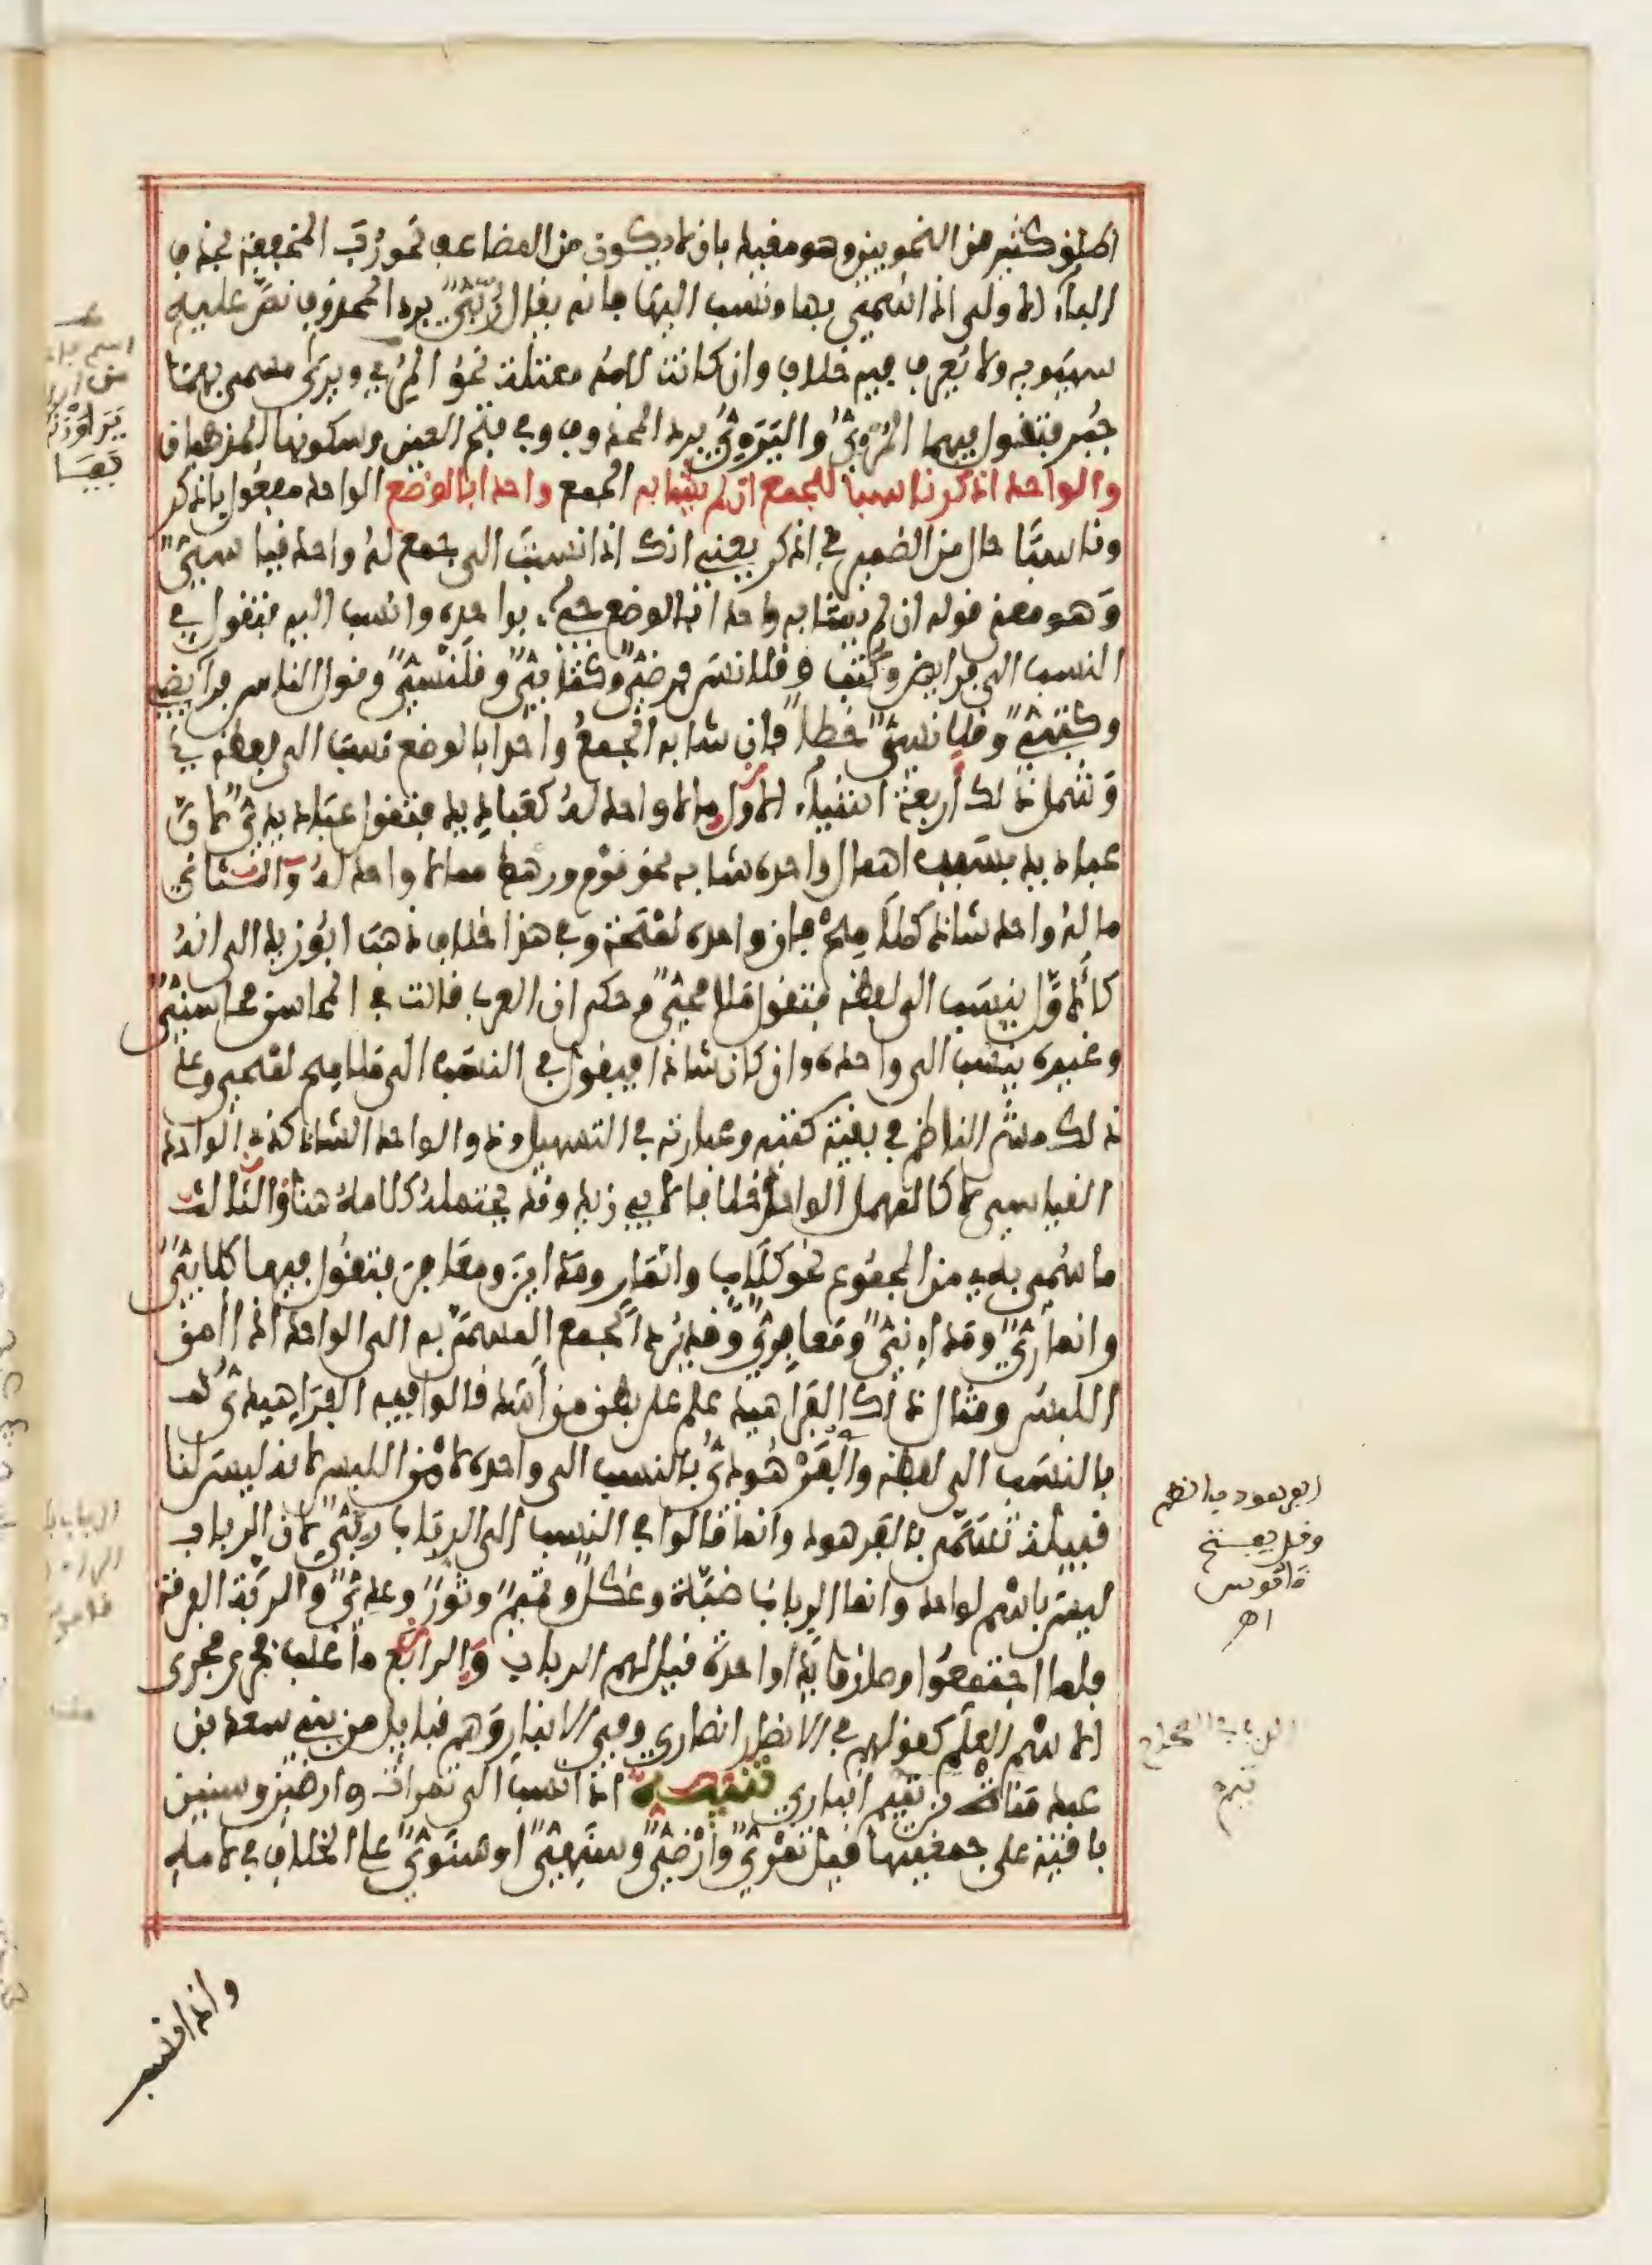 اطلق كثير من النحويين وهو مقيد بان لا يكون من المضاعف نحو رُبَ المخففة بحذف
الباء الاولى اذا سُمي بها ونسب اليها فانه يقال رُبّيّ برد المحذوف نصّ عليه
سيبويه ولا يُعرف فيه خلاف وان كانت لامه معتلة نحو المُرِي ويرَى مسمى بهما
جُبر فتقول فيهما المُرْءِيُّ واليَرَءِيُّ برد المحذوف وفي فتح العين وسكونها المذهبان
والواحد اذكر ناسبا للجمع ان لم يشابه الجمع واحدا بالوضع الواحد مفعول باذكر
وناسبًا حال من الضمير في اذكر يعني انك اذا نسبت الى جمع له واحد قياسيّ
وهو معنى قوله ان لم يشابه واحدا بالوضع جيء بواحده وانسب اليه فتقول في
النسب الى فرايض وكُتُب وقلانس فرضيٌّ وكتابيٌّ وقلنسيٌّ وقول الناس فرآيضي
وكتبيٌّ وقلانسيٌّ خطأ فان شابه الجمعُ واحدا بالوضع نسب الى لفظه في
وشمل ذلك أربعة اشياء الاول ما لا واحد له كعباديد فتقول عباديديّ لانّ
عباديد بسبب اهمال واحده شابه نحو قوم ورهط مما لا واحد له والثاني
ما له واحد شاذ كملامح فان واحده لمحة وفي هذا خلاف ذهب ابو زيد الى انه
كالاوّل ينسب الى لفظه فتقول ملامحيّ وحكى ان العرب قالت في المحاسن محاسنيّ
وغيره ينسب الى واحده وان كان شاذا فيقول في النسب الى ملامح لمحي وعلى
ذلك مشى الناظم في بقية كتبه وعبارته في التسهيل وذو الواحد الشاذ كذي الواحد
القياسي لا كالمهمل الواحد خلافا لابي زيد وقد يحتمله كلامه هنا والثالث
ما سُمي به من الجموع نحو كلاب وانمار ومداين ومعافر فتقول فيها كلابيّ
وانماريّ ومداينيّ ومعافريّ وقد يُرد الجمع المسمى به الى الواحد اذا أمن
اللبس ومثال ذلك الفراهيد علم على بطن من أسد قالوا فيه الفراهيدىُّ
بالنسب الى لفظه والفُرْهُودىُّ بالنسب الى واحده لامن اللبس لانه ليس لنا
قبيلة تسمى بالفرهود وانما قالوا في النسب الى الرباب رُبّيٌّ لان الرباب
ليس باسم لواحد وانما الرباب ضبّة وعكل وتيم وثور وعدي والربّة الفرقة
فلما اجتمعوا وصاروا يدا واحدة قيل لهم الرباب والرابع ما غلب فجرى مجرى
الاسم العلم كقولهم في الانصار انصاري وفي الانبار وهم قبايل من بني سعد بن
عبد مناة بن تميم انباري تنبيه اذا نسب الى تمرات وارضين وسنين
باقية على جمعيتها قيل تمْريّ وأرْضيّ وسنهيّ او سنويّ على الخلاف في لامه
واذا نسب
ابو سعود بالضم
وقد يفتح
قاموس
اهـ